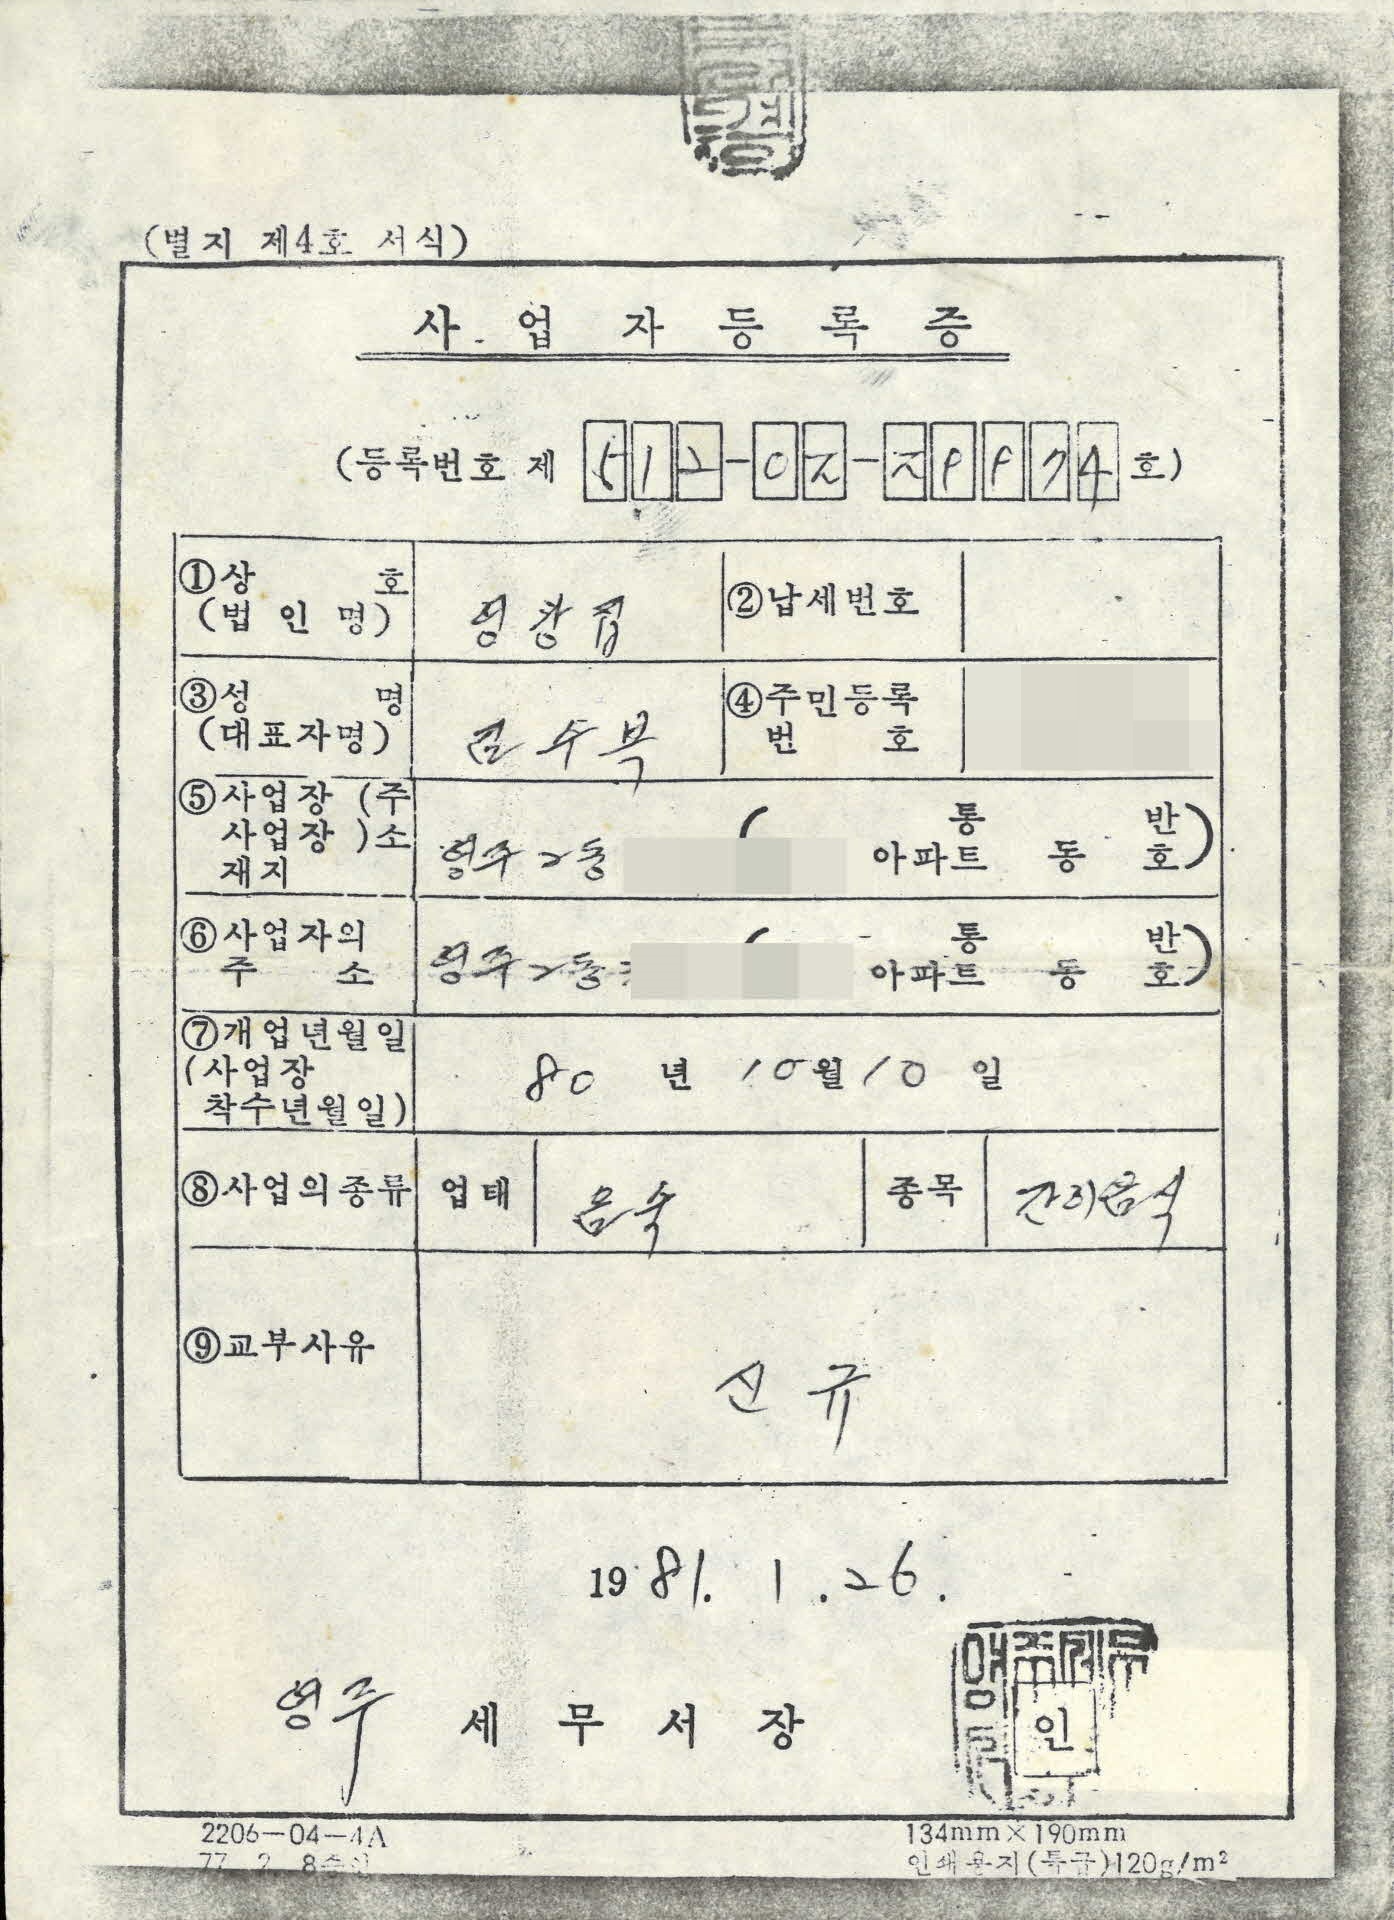 (별지 제4호 서식)
사 업 자 등 록 증
(등록번호 제 512-02- 호)
①상 호
(법 인 명)
②납세번호
③성 명
(대표자명)
김 수 복
④주민등록
번 호
⑤사업장 (주
사업장 )소
재지
영주 2동
( 통 반
아파트 동 호)
⑥사업자의
주 소
영주 2동
( 통 반
아파트 동 호)
⑦개업년월일
(사업장
착수년월일)
80 년 10월 10 일
⑧사업의종류 업태 음숙 종목 간이음식
⑨교부사유
신 규
1981. 1. 26.
영주 세 무 서 장
인
2206-04-4A
134mm×190mm
77. 2. 8승인
인쇄용지(특급)120g/m²